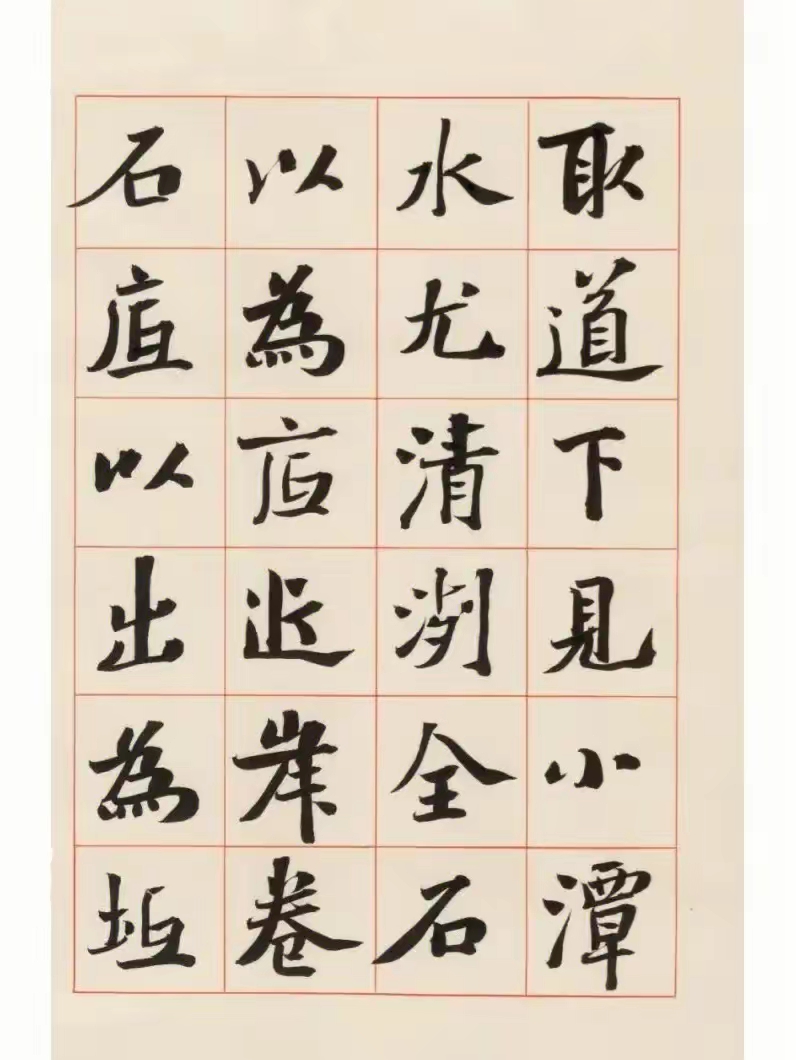 取道下見小潭
水尤清洌全石
以為底近岸卷
石底以出為坻